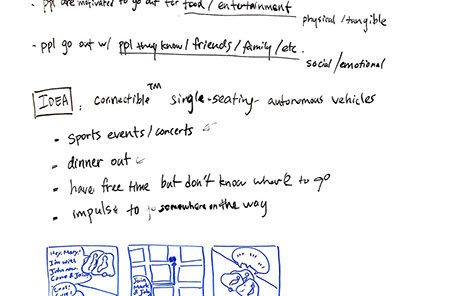 - ppl are motivated to go out for food / entertainment
physical / tangible
- ppl go out w/ ppl they know / friends / family / etc.
social / emotional
IDEA : connectible™ single-seating autonomous vehicles
- sports events / concerts
- dinner out
- have free time but don't know where to go
- impulse to go somewhere on the way
Hey, Mary!
I'm with
John now.
Come & Join